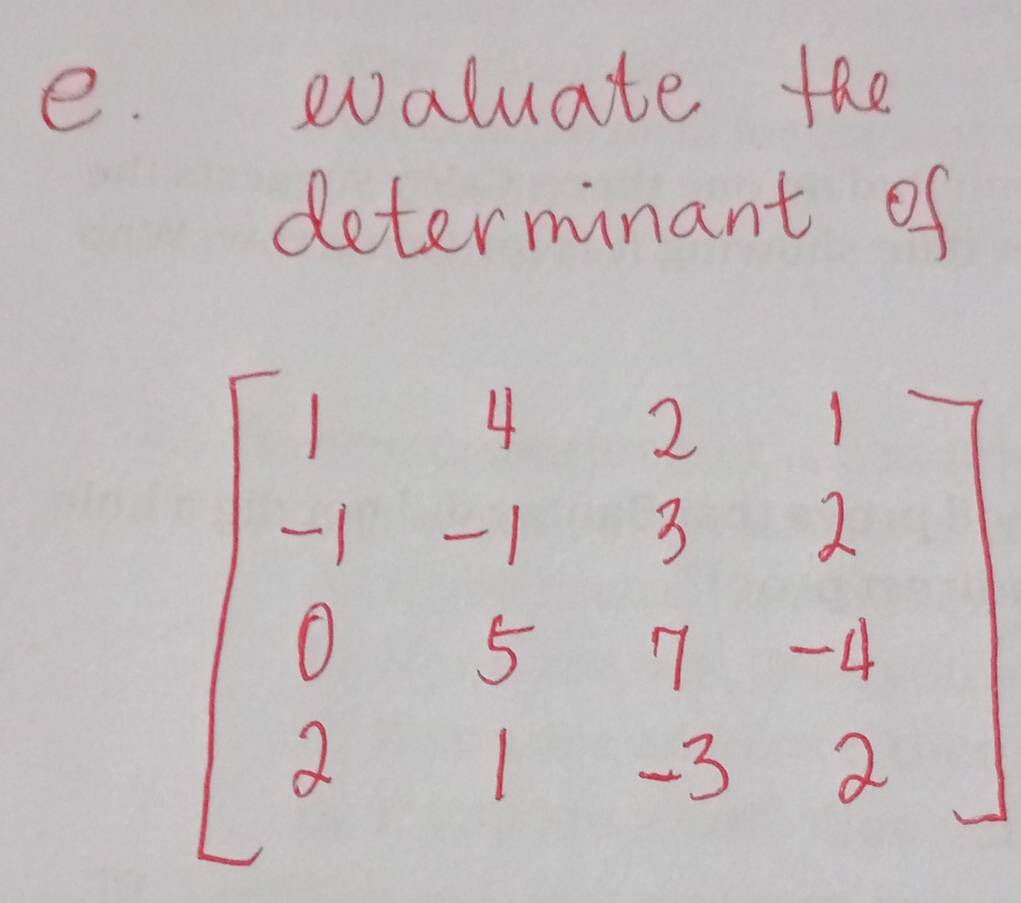 e. evaluate the
determinant of
1 4 2 1
-1 -1 3 2
0 5 7 -4
2 1 -3 2